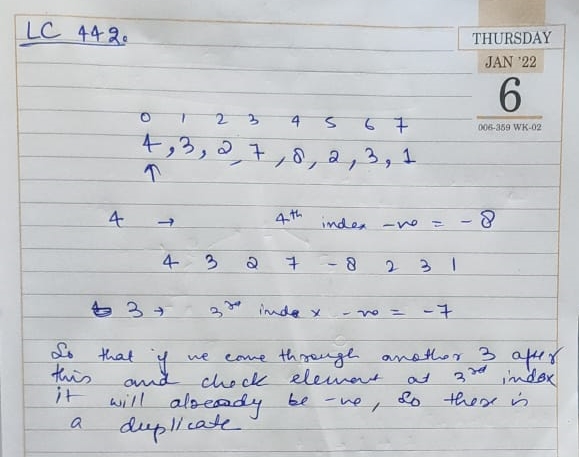 LC 442.
THURSDAY
JAN '22
6
006-359 WK-02
0 1 2 3 4 5 6 7
4, 3, 2, 7, 8, 2, 3, 1
↑
4 → 4th index -ve = -8
4 3 2 7 -8 2 3 1
3 → 3rd index -ve = -7
So that if we come through another 3 after
this and check element at 3rd index
it will already be -ve, So there is
a duplicate